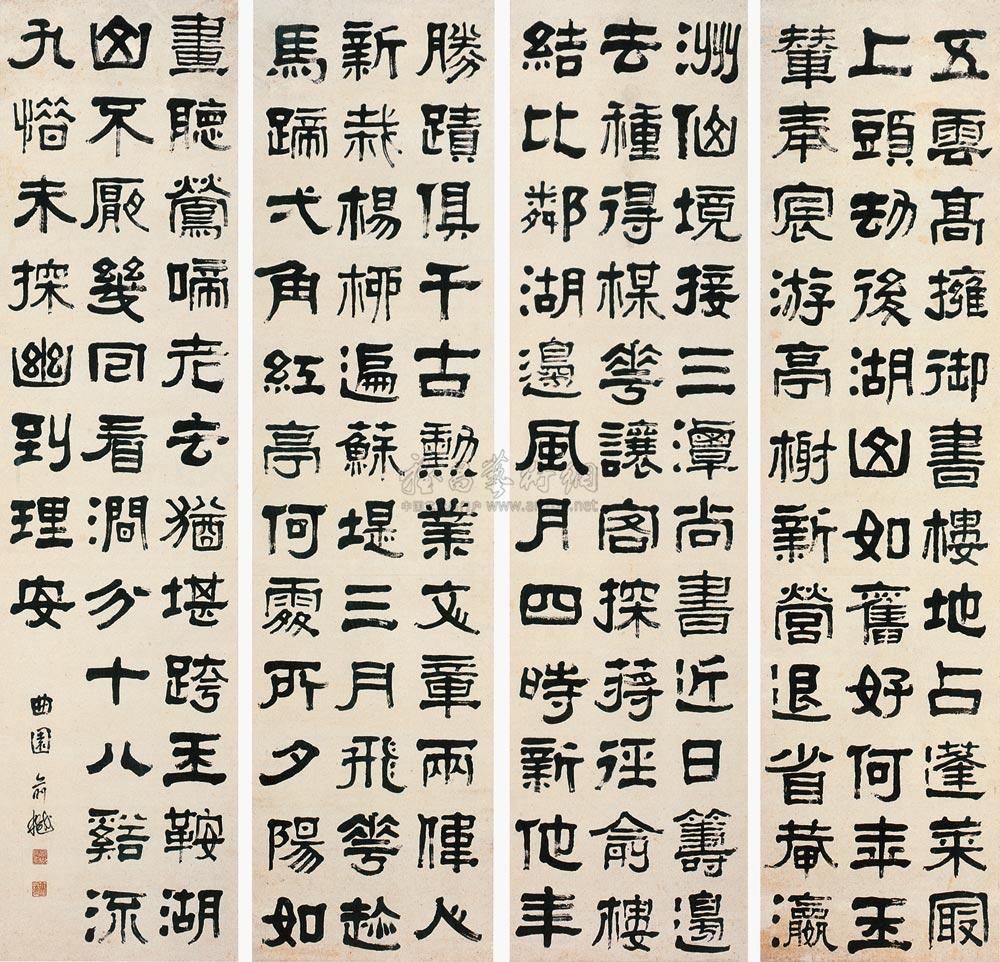 五雲高擁御書樓地占蓬萊最
上頭劫後湖山如舊好何年玉
輦奉宸游亭榭新營退省菴瀛
洲仙境接三潭尚書近日籌邊
去種得楳花讓客探蔣徑俞樓
結比鄰湖邊風月四時新他年
勝蹟俱千古勳業文章兩偉人
新栽楊柳遍蘇堤三月飛花趁
馬蹄弌角紅亭何處所夕陽如
畫聽鶯啼老去猶堪跨玉鞍湖
山不厭幾回看澗分十八谿流
九惜未探幽到理安
曲園俞樾